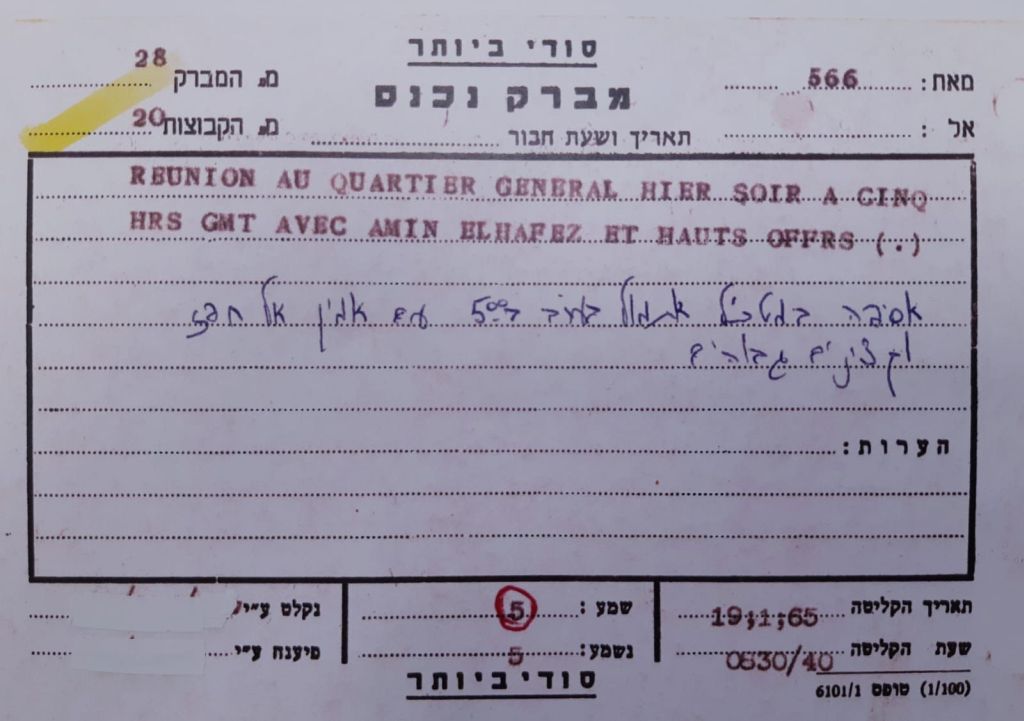 סודי ביותר
מאת: 566
מברק נכנס
מס המברק 28
אל:
תאריך ושעת חבור
מס הקבוצות 20
REUNION AU QUARTIER GENERAL HIER SOIR A CINQ
HRS GMT AVEC AMIN ELHAFEZ ET HAUTS OFFRS (.)
אסיפה במטכ"ל אתמול בערב ב 5⁰⁰ עם אמין אל חפז
וקצינים גבוהים
הערות:
תאריך הקליטה 19;1;65
שמע: 5
נקלט ע"י
שעת הקליטה 0830/40
נשמע: 5
פיענח ע"י
סודי ביותר
6101/1 טופס (1/100)